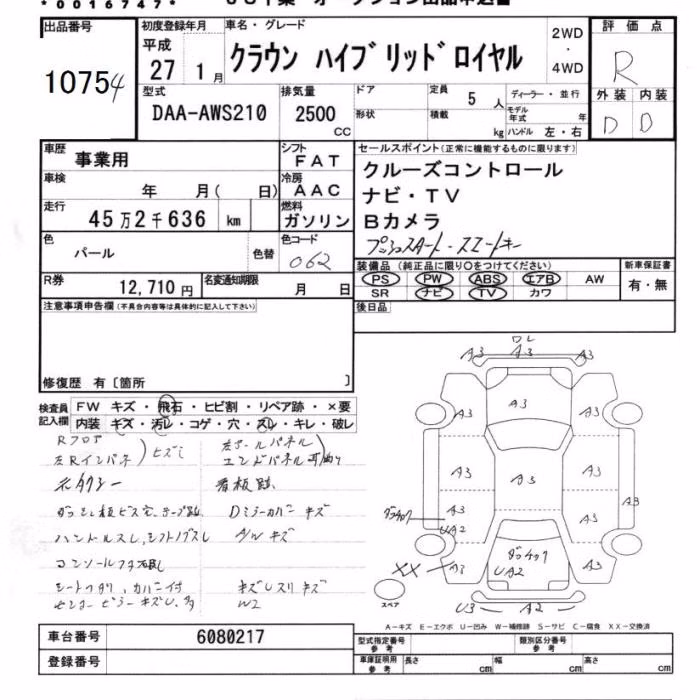 *0016747*
出品番号
10754
初度登録年月
平成
27 1月
車名・グレード
クラウン ハイブリッドロイヤル
2WD
・
4WD
評価点
R
外装 内装
D D
型式
DAA-AWS210
排気量
2500
CC
ドア
形状
定員
5人
積載
kg
ディーラー・並行
モデル年式 年
ハンドル 左・右
車歴
事業用
シフト
FAT
車検
年 月( 日)
冷房
AAC
走行
45万2千636 km
燃料
ガソリン
色
パール
色替
色コード
062
セールスポイント(正常に機能するものに限ります)
クルーズコントロール
ナビ・TV
Bカメラ
プッシュスタート・スマートキー
R券
12,710円
名変通知期限
月 日
装備品 (純正品に限り〇をつけてください)
PS PW ABS エアB AW
SR ナビ TV カワ
新車保証書
有・無
後日品
注意事項申告欄(不具合内容等は具体的に記入して下さい)
修復歴 有〔箇所 〕
検査員
記入欄
FW キズ・飛石・ヒビ割・リペア跡・×要
内装 キズ・汚レ・コゲ・穴・スレ・キレ・破レ
Rフロア
左Rインパネ
ヒズミ
元タクシー
看板跡
Dミラーカバー キズ
ハンドルスレ、シフトノブスレ
A/W キズ
シートヘタリ、カバー付
W2
A3 A3 A3
A3 A3 A3
A3 A3 A3
A3 A3 A3
UA2
XX A3
UA2
A3
U3 A2
スペア
A-キズ E-エクボ U-凹み W-補修跡 S-サビ C-腐食 XX-交換済
車台番号
6080217
登録番号
型式指定番号
参考
類別区分番号
参考
車庫証明用
参考
長さ cm 幅 cm 高さ cm